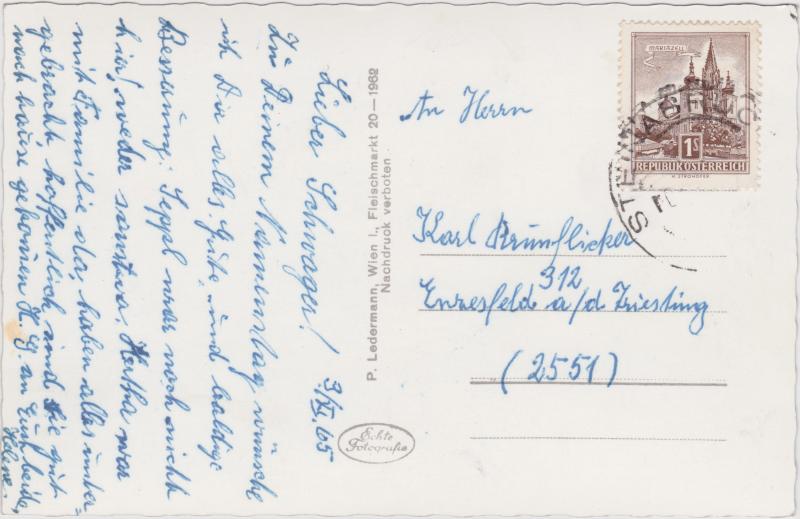 Lieber Schwager! 3/XI. 65
Zu Deinem Namenstag wünsche
ich Dir alles Gute und baldige
Besserung. Seppl war noch nicht
hier, weder sonstwer. Hertha war
mit Familie da, haben alles unter-
gebracht hoffentlich sind sie gut
nach hause gekommen H. G. an Euch beide,
Helene.
P. Ledermann, Wien I., Fleischmarkt 20—1962
Nachdruck verboten
Echte
Fotografie
An Herrn
Karl Brunflicker
312
Enzesfeld a/d Triesting
(2551)
MARIAZELL
1S
REPUBLIK ÖSTERREICH
H. STROHOFER